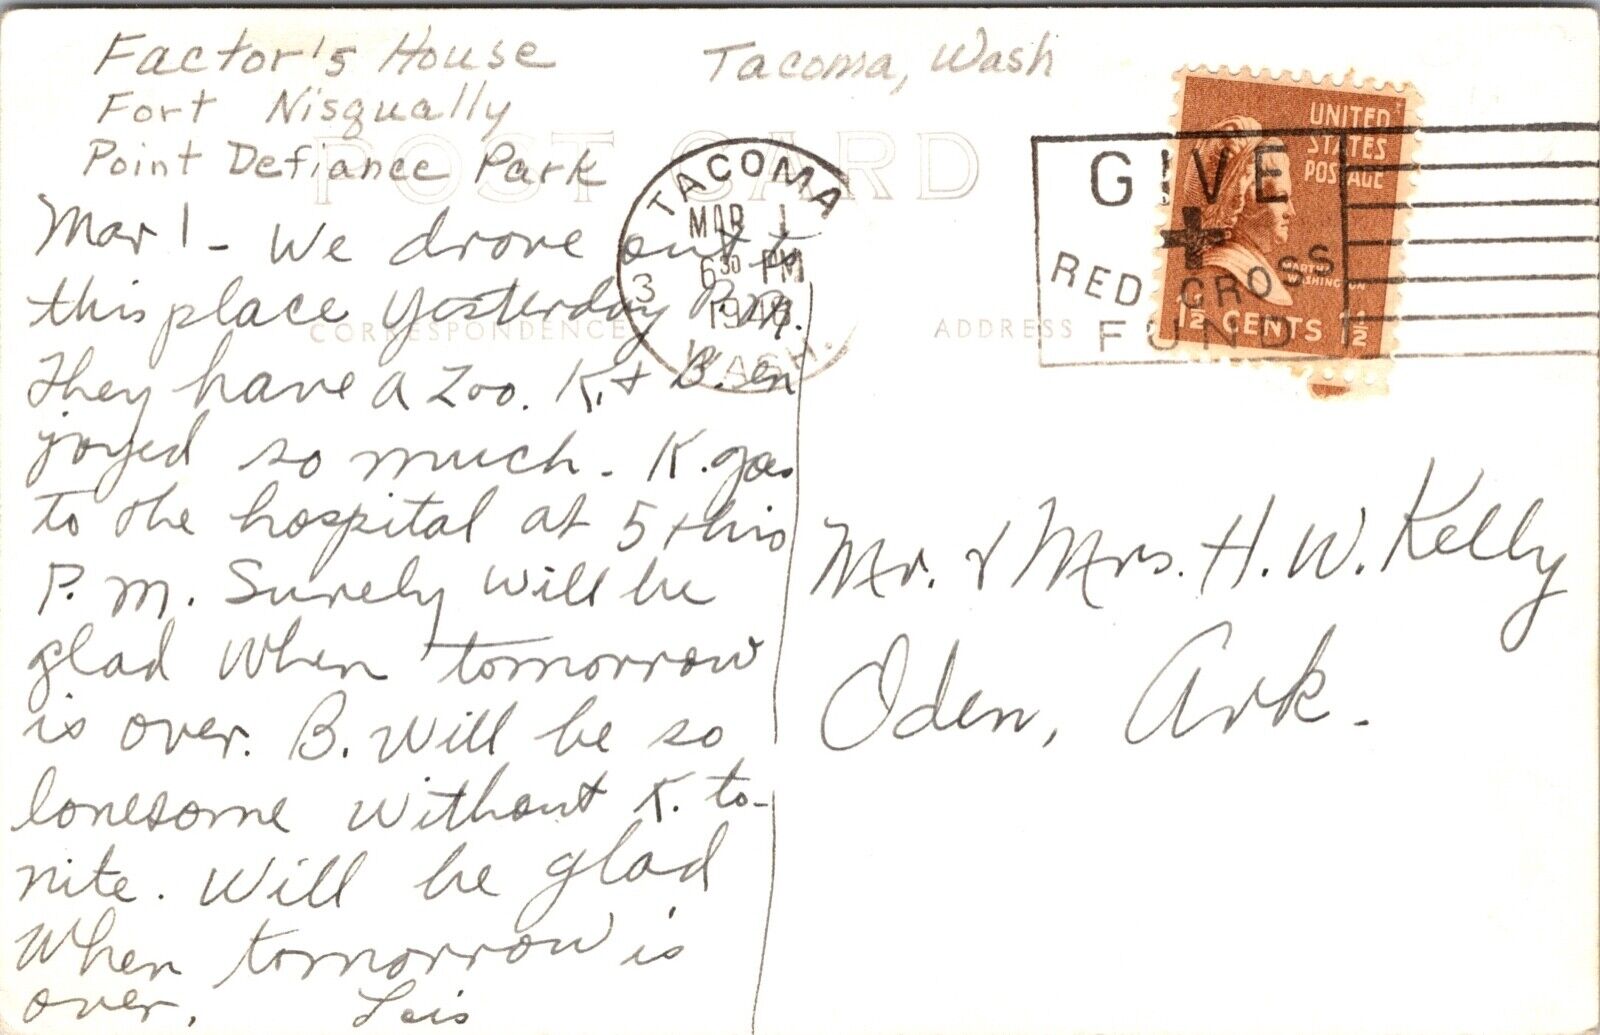 Factor's House
Fort Nisqually
Point Defiance Park
Tacoma, Wash
POST CARD
CORRESPONDENCE
ADDRESS
TACOMA
MAR 1
6 30 PM
194
3
WASH.
GIVE
RED CROSS
FUND
UNITED
STATES
POSTAGE
MARTHA
WASHINGTON
1½ CENTS 1½
Mar 1 - We drove out to
this place yesterday P.M.
They have a Zoo. K. & B. en
joyed so much. K. goes
to the hospital at 5 this
P.M. Surely will be
glad when tomorrow
is over. B. will be so
lonesome without K. to-
nite. Will be glad
when tomorrow is
over. Lois
Mr. & Mrs. H. W. Kelly
Oden, Ark.